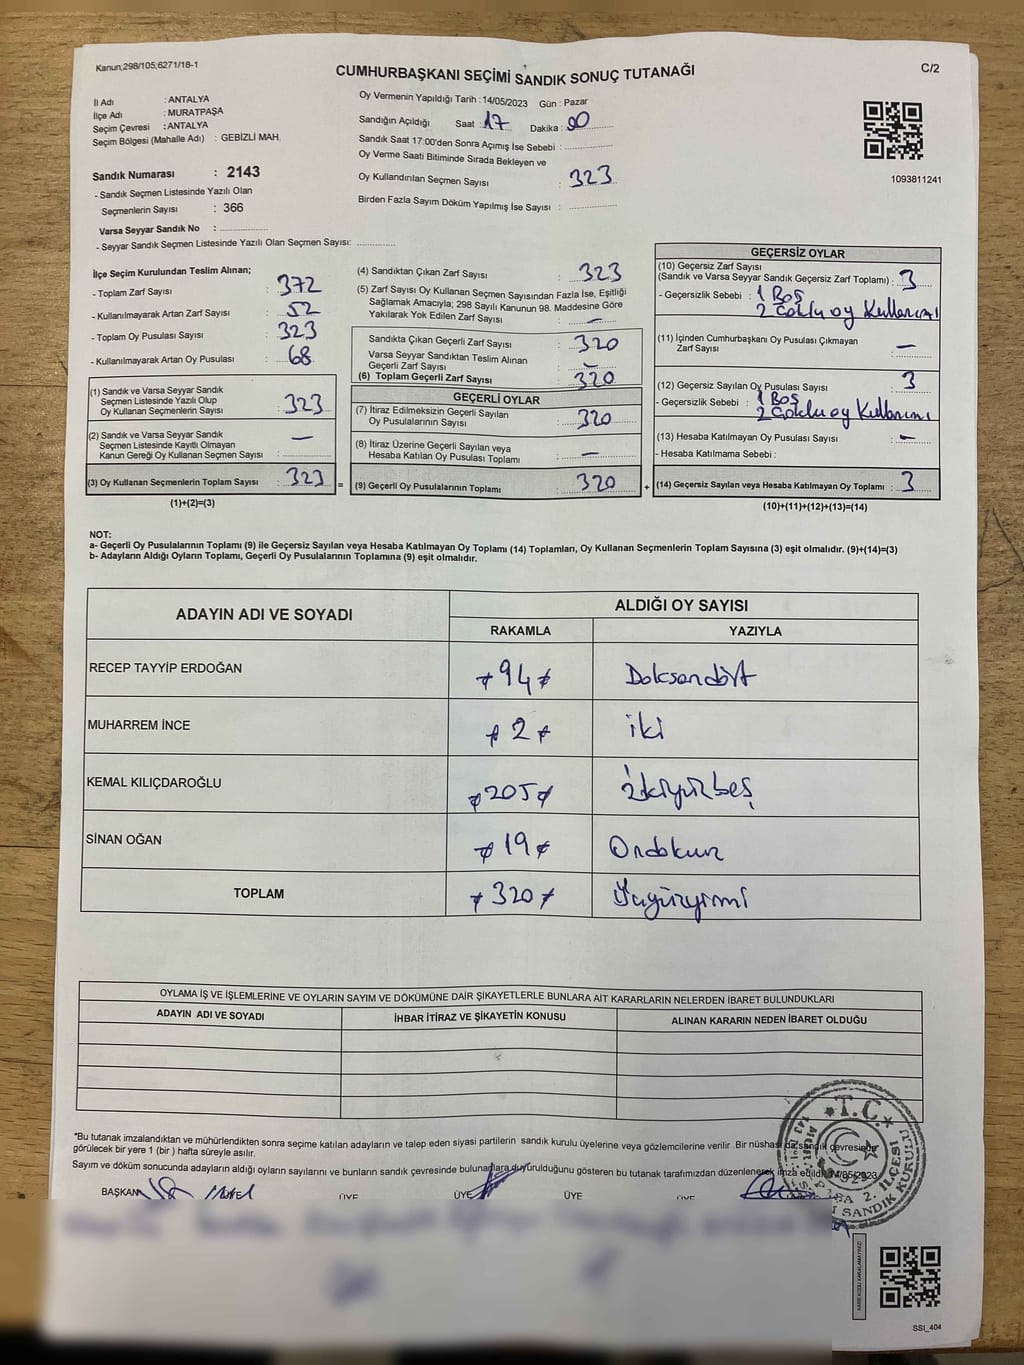 Kanun;298/105;6271/18-1
CUMHURBAŞKANI SEÇİMİ SANDIK SONUÇ TUTANAĞI
C/2
İl Adı : ANTALYA
İlçe Adı : MURATPAŞA
Seçim Çevresi : ANTALYA
Seçim Bölgesi (Mahalle Adı) : GEBİZLİ MAH.
Sandık Numarası : 2143
- Sandık Seçmen Listesinde Yazılı Olan
Seçmenlerin Sayısı : 366
Varsa Seyyar Sandık No : ..............
- Seyyar Sandık Seçmen Listesinde Yazılı Olan Seçmen Sayısı: ..............
Oy Vermenin Yapıldığı Tarih : 14/05/2023 Gün : Pazar
Sandığın Açıldığı Saat : 17 Dakika : 00
Sandık Saat 17:00'den Sonra Açımış İse Sebebi : ..............
Oy Verme Saati Bitiminde Sırada Bekleyen ve
Oy Kullandırılan Seçmen Sayısı : 323
Birden Fazla Sayım Döküm Yapılmış İse Sayısı : ..............
1093811241
İlçe Seçim Kurulundan Teslim Alınan;
- Toplam Zarf Sayısı : 372
- Kullanılmayarak Artan Zarf Sayısı : 52
- Toplam Oy Pusulası Sayısı : 323
- Kullanılmayarak Artan Oy Pusulası : 68
(1) Sandık ve Varsa Seyyar Sandık
Seçmen Listesinde Yazılı Olup
Oy Kullanan Seçmenlerin Sayısı : 323
(2) Sandık ve Varsa Seyyar Sandık
Seçmen Listesinde Kayıtlı Olmayan
Kanun Gereği Oy Kullanan Seçmen Sayısı : —
(3) Oy Kullanan Seçmenlerin Toplam Sayısı : 323
(1)+(2)=(3)
(4) Sandıktan Çıkan Zarf Sayısı : 323
(5) Zarf Sayısı Oy Kullanan Seçmen Sayısından Fazla İse, Eşitliği
Sağlamak Amacıyla; 298 Sayılı Kanunun 98. Maddesine Göre
Yakılarak Yok Edilen Zarf Sayısı : —
Sandıkta Çıkan Geçerli Zarf Sayısı : 320
Varsa Seyyar Sandıktan Teslim Alınan
Geçerli Zarf Sayısı : —
(6) Toplam Geçerli Zarf Sayısı : 320
GEÇERLİ OYLAR
(7) İtiraz Edilmeksizin Geçerli Sayılan
Oy Pusulalarının Sayısı : 320
(8) İtiraz Üzerine Geçerli Sayılan veya
Hesaba Katılan Oy Pusulası Toplamı : —
= (9) Geçerli Oy Pusulalarının Toplamı : 320
GEÇERSİZ OYLAR
(10) Geçersiz Zarf Sayısı
(Sandık ve Varsa Seyyar Sandık Geçersiz Zarf Toplamı) : 3
- Geçersizlik Sebebi : 1 Boş
2 Çoklu oy Kullanımı
(11) İçinden Cumhurbaşkanı Oy Pusulası Çıkmayan
Zarf Sayısı : —
(12) Geçersiz Sayılan Oy Pusulası Sayısı : 3
- Geçersizlik Sebebi : 1 Boş
2 Çoklu oy Kullanımı
(13) Hesaba Katılmayan Oy Pusulası Sayısı : —
- Hesaba Katılmama Sebebi :
+ (14) Geçersiz Sayılan veya Hesaba Katılmayan Oy Toplamı : 3
(10)+(11)+(12)+(13)=(14)
NOT:
a- Geçerli Oy Pusulalarının Toplamı (9) ile Geçersiz Sayılan veya Hesaba Katılmayan Oy Toplamı (14) Toplamları, Oy Kullanan Seçmenlerin Toplam Sayısına (3) eşit olmalıdır. (9)+(14)=(3)
b- Adayların Aldığı Oyların Toplamı, Geçerli Oy Pusulalarının Toplamına (9) eşit olmalıdır.
ADAYIN ADI VE SOYADI
ALDIĞI OY SAYISI
RAKAMLA YAZIYLA
RECEP TAYYİP ERDOĞAN 94 Doksandört
MUHARREM İNCE 2 iki
KEMAL KILIÇDAROĞLU 205 ikiyüzbeş
SİNAN OĞAN 19 Ondokuz
TOPLAM 320 Üçyüzyirmi
OYLAMA İŞ VE İŞLEMLERİNE VE OYLARIN SAYIM VE DÖKÜMÜNE DAİR ŞİKAYETLERLE BUNLARA AİT KARARLARIN NELERDEN İBARET BULUNDUKLARI
ADAYIN ADI VE SOYADI İHBAR İTİRAZ VE ŞİKAYETİN KONUSU ALINAN KARARIN NEDEN İBARET OLDUĞU
*Bu tutanak imzalandıktan ve mühürlendikten sonra seçime katılan adayların ve talep eden siyasi partilerin sandık kurulu üyelerine veya gözlemcilerine verilir. Bir nüshası da sandık çevresinde
görülecek bir yere 1 (bir) hafta süreyle asılır.
Sayım ve döküm sonucunda adayların aldığı oyların sayılarını ve bunların sandık çevresinde bulunanlara duyurulduğunu gösteren bu tutanak tarafımızdan düzenlenerek imza edildi. 14/05/2023
BAŞKAN ÜYE ÜYE ÜYE ÜYE ÜYE
T.C.
2. İLÇESİ
SANDIK KURULU
SSI_404